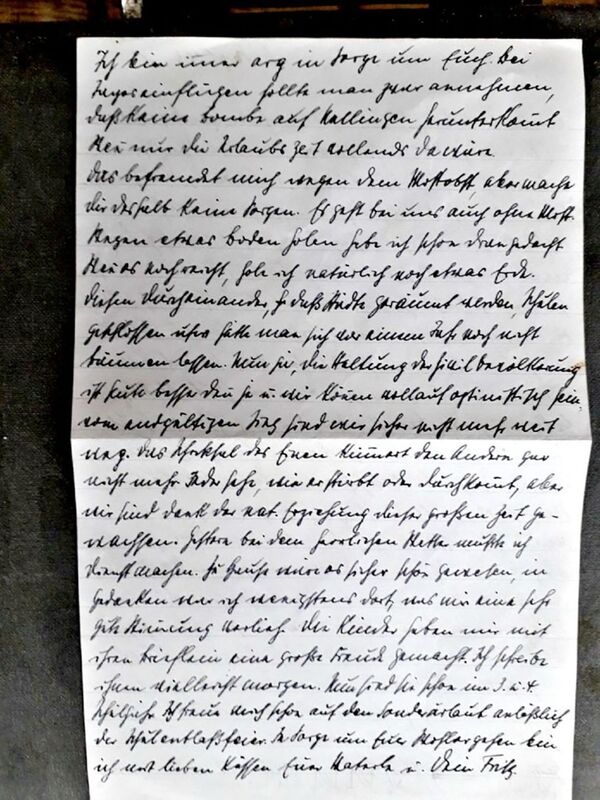 Ich bin immer arg in Sorge um Euch. Bei
Tageseinflügen sollte man zwar annehmen,
daß keine Bombe auf herunterkommt
nur die Urlaubszeit vollends da wäre.
Das befremdet mich wegen dem Mostobst, aber mache
dir deshalb keine Sorgen. Es geht bei uns auch ohne Most.
Wegen etwas Boden holen habe ich schon dran gedacht
noch reicht, hole ich natürlich noch etwas Erde.
Diesen Durcheinander, so daß Städte geräumt werden, Schulen
geschlossen usw hätte man sich vor einem Jahr noch nicht
träumen lassen. Nun ja, die Haltung der Zivilbevölkerung
ist heute besser den je u. wir können vollauf optimistisch sein,
vom endgültigen Sieg sind wir sicher nicht mehr weit
weg. Das Schicksal des Einen kümmert den Andern gar
nicht mehr. Jeder sehe, wie er stirbt oder durchkomt, aber
wir sind dank der nat. Erziehung dieser großen Zeit ge-
wachsen. Gestern bei dem herrlichen Wetter mußte ich
Dienst machen. Zu Hause wäre es sicher schön gewesen, in
Gedanken war ich wenigstens dort, was mir eine sehr
gute Stimmung verlieh. Die Kinder haben mir mit
ihren Brieflein eine große Freude gemacht. Ich schreibe
ihnen vielleicht morgen. Nun sind sie schon im 3. u. 4.
Schuljahr. Ich freue mich schon auf den Sonderurlaub anläßlich
der Schulentlaßfeier. In Sorge um Euer Wohlergehen bin
ich mit lieben Küssen Euer Vaterle u. Dein Fritz.